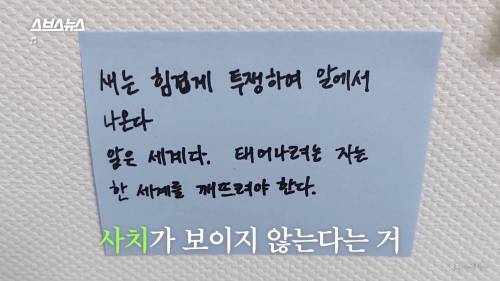 스브스뉴스
새는 힘겹게 투쟁하며 알에서
나온다
알은 세계다. 태어나려는 자는
한 세계를 깨뜨려야 한다.
사치가 보이지 않는다는 거